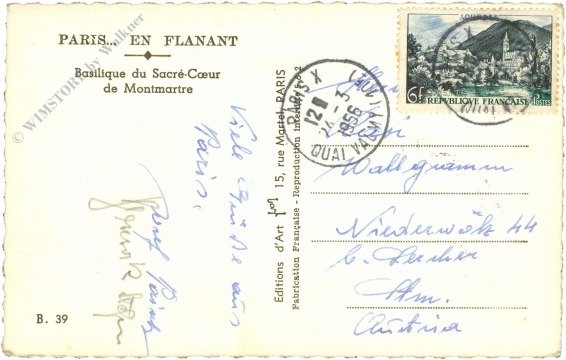 PARIS... EN FLANANT
Basilique du Sacré-Cœur
de Montmartre
© WIMSTORE by Walkner
Viele Grüße aus
Paris.
Josef
B. 39
Editions d'Art 15, rue Martel, PARIS
Fabrication Française - Reproduction Interdite
LOURDES
6f RÉPUBLIQUE FRANÇAISE POSTES
PARIS X
12H
24-3
1956
QUAI VALMY (X)
Wallgramm
Niederwölz 44
Stm.
Austria